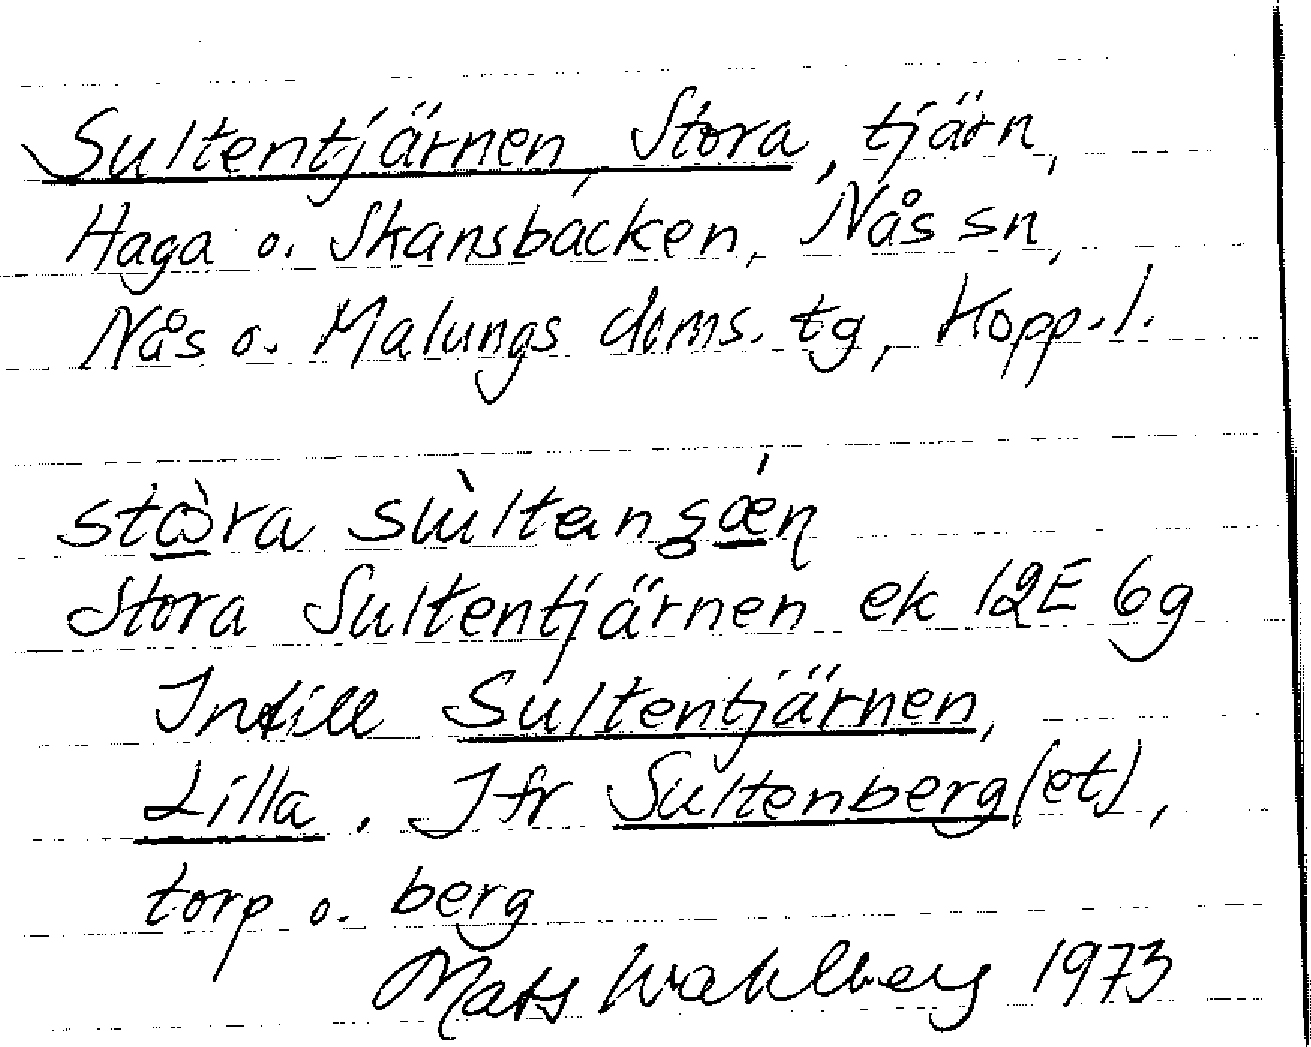 Sultentjärnen, Stora, tjärn,
Haga o. Skansbacken, Nås sn,
Nås o. Malungs doms. tg, Kopp. l.
Stora Sultentjärnen ek 12E 6g
Intill Sultentjärnen,
Lilla. Jfr Sultenberg(et),
torp o. berg
Mats Wahlberg 1973